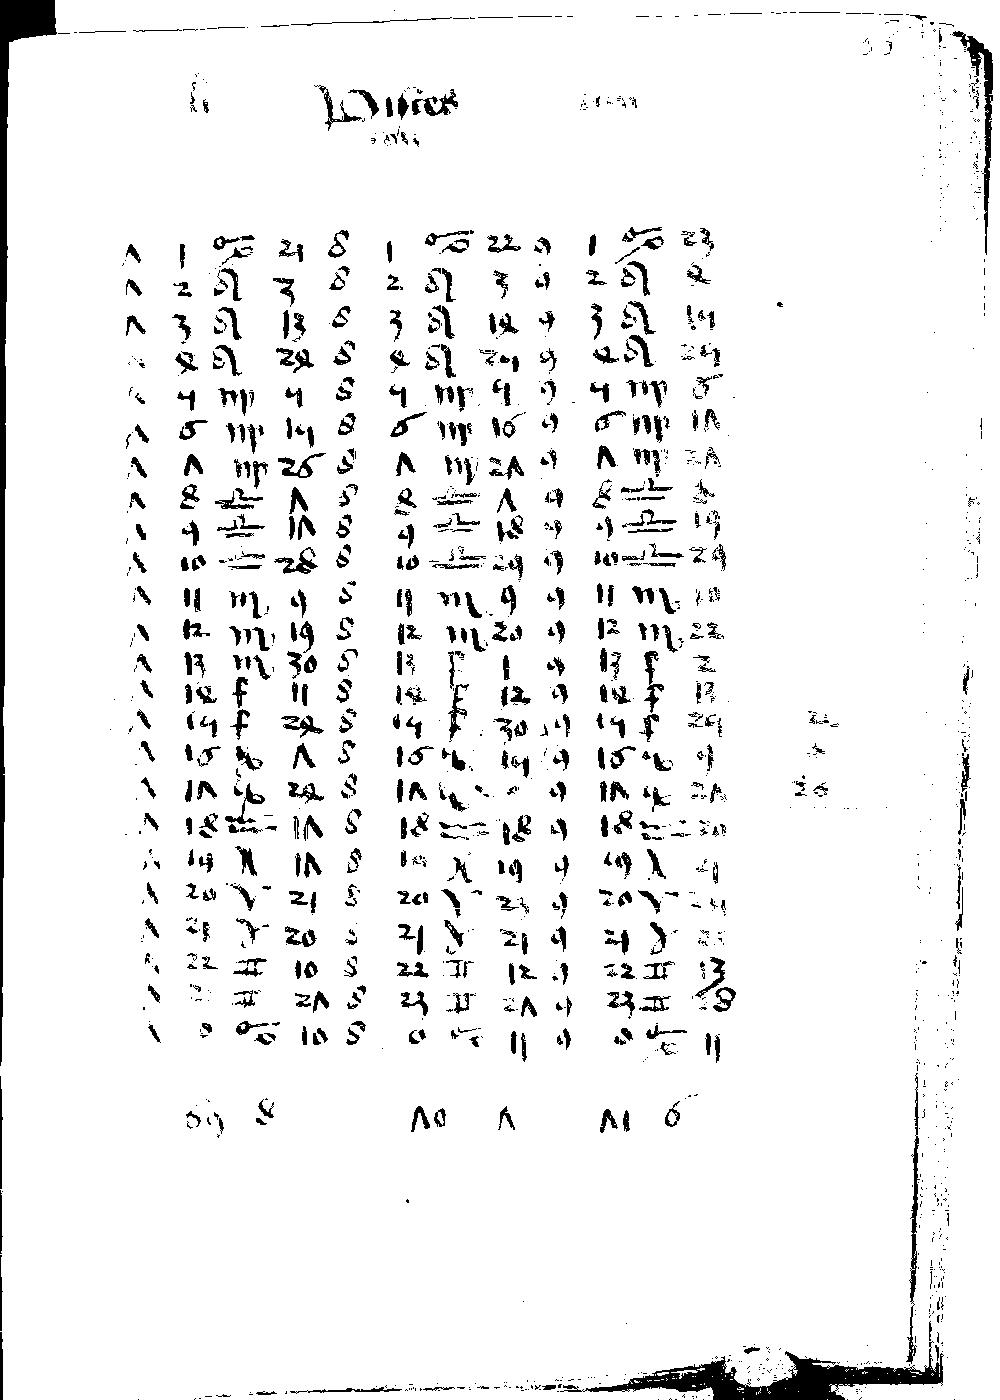 Pisces
7 1 ♋ 21 8 1 ♋ 22 9 1 ♋ 23
7 2 ♌ 3 8 2 ♌ 3 9 2 ♌ 4
7 3 ♌ 13 8 3 ♌ 14 9 3 ♌ 15
7 4 ♌ 24 8 4 ♌ 25 9 4 ♌ 25
7 5 ♍ 5 8 5 ♍ 5 9 5 ♍ 6
7 6 ♍ 15 8 6 ♍ 16 9 6 ♍ 17
7 7 ♍ 26 8 7 ♍ 27 9 7 ♍ 27
7 8 ♎ 7 8 8 ♎ 7 9 8 ♎ 8
7 9 ♎ 17 8 9 ♎ 18 9 9 ♎ 19
7 10 ♎ 28 8 10 ♎ 29 9 10 ♎ 29
7 11 ♏ 9 8 11 ♏ 9 9 11 ♏ 10
7 12 ♏ 19 8 12 ♏ 20 9 12 ♏ 22
7 13 ♏ 30 8 13 ♐ 1 9 13 ♐ 2
7 14 ♐ 11 8 14 ♐ 12 9 14 ♐ 13
7 15 ♐ 24 8 15 ♐ 30 9 15 ♐ 29
7 16 ♑ 7 8 16 ♑ 15 9 16 ♑ 9
7 17 ♑ 24 8 17 ♑ 9 17 ♑ 27
7 18 ♒ 17 8 18 ♒ 18 9 18 ♒ 20
7 19 ♓ 17 8 19 ♓ 19 9 19 ♓
7 20 ♈ 21 8 20 ♈ 23 9 20 ♈ 25
7 21 ♉ 20 8 21 ♉ 21 9 21 ♉
7 22 ♊ 10 8 22 ♊ 12 9 22 ♊ 13
7 23 ♊ 27 8 23 ♊ 27 9 23 ♊ 28
7 0 ♋ 10 8 0 ♋ 11 9 0 ♋ 11
69 8 70 7 71 6